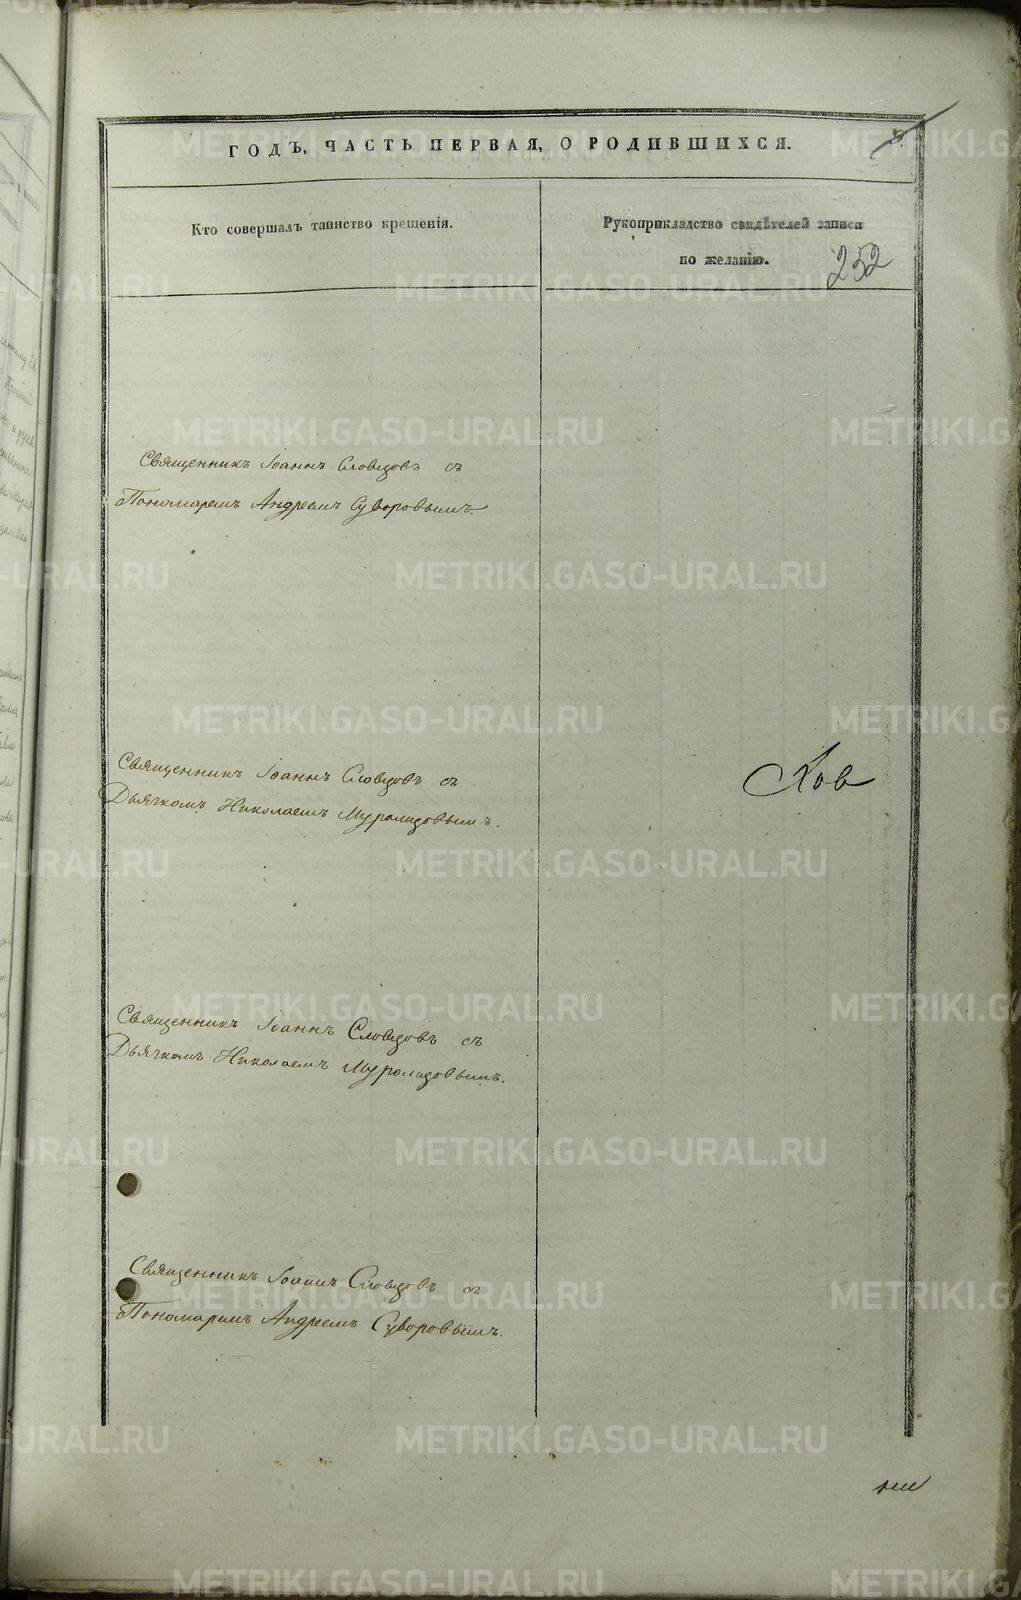 ГОДЪ, ЧАСТЬ ПЕРВАЯ, О РОДИВШИХСЯ.
Кто совершалъ таинство крещенія.
Рукоприкладство свидѣтелей записи
по желанію.
252
Священникъ Іоаннъ Словцовъ съ
Пономаремъ Андреемъ Суворовымъ.
Священникъ Іоаннъ Словцовъ съ
Дьячкомъ Николаемъ
Ков
Священникъ Іоаннъ Словцовъ съ
Дьячкомъ Николаемъ
Священникъ Іоаннъ Словцовъ съ
Пономаремъ Андреемъ Суворовымъ.
METRIKI.GASO-URAL.RU